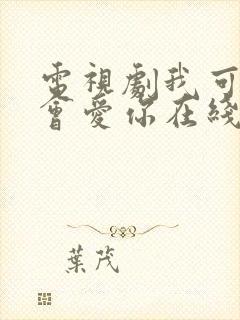 電視劇我可
會愛你在綫
葉茂